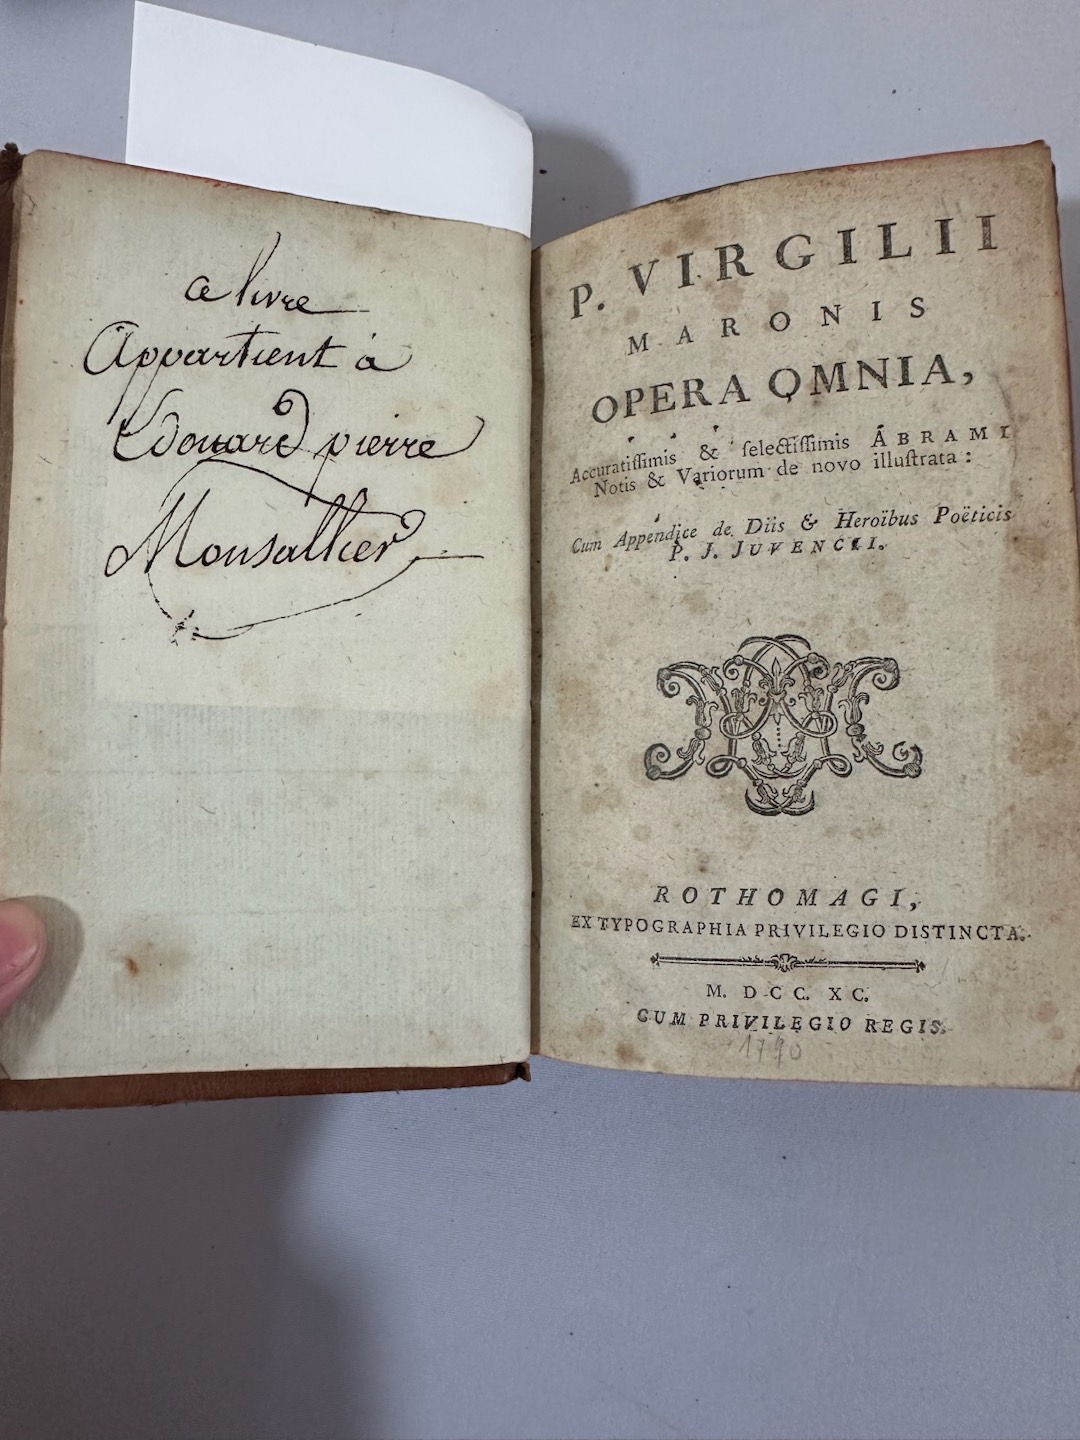 ce livre
Appartient à
Edouard pierre
Monsallier
P. VIRGILII
MARONIS
OPERA OMNIA,
Accuratiſſimis & ſelectiſſimis ABRAMI
Notis & Variorum de novo illuſtrata :
Cum Appendice de Diis & Heroïbus Poëticis
P. J. JUVENCII.
ROTHOMAGI,
EX TYPOGRAPHIA PRIVILEGIO DISTINCTA.
M. DCC. XC.
CUM PRIVILEGIO REGIS.
1790